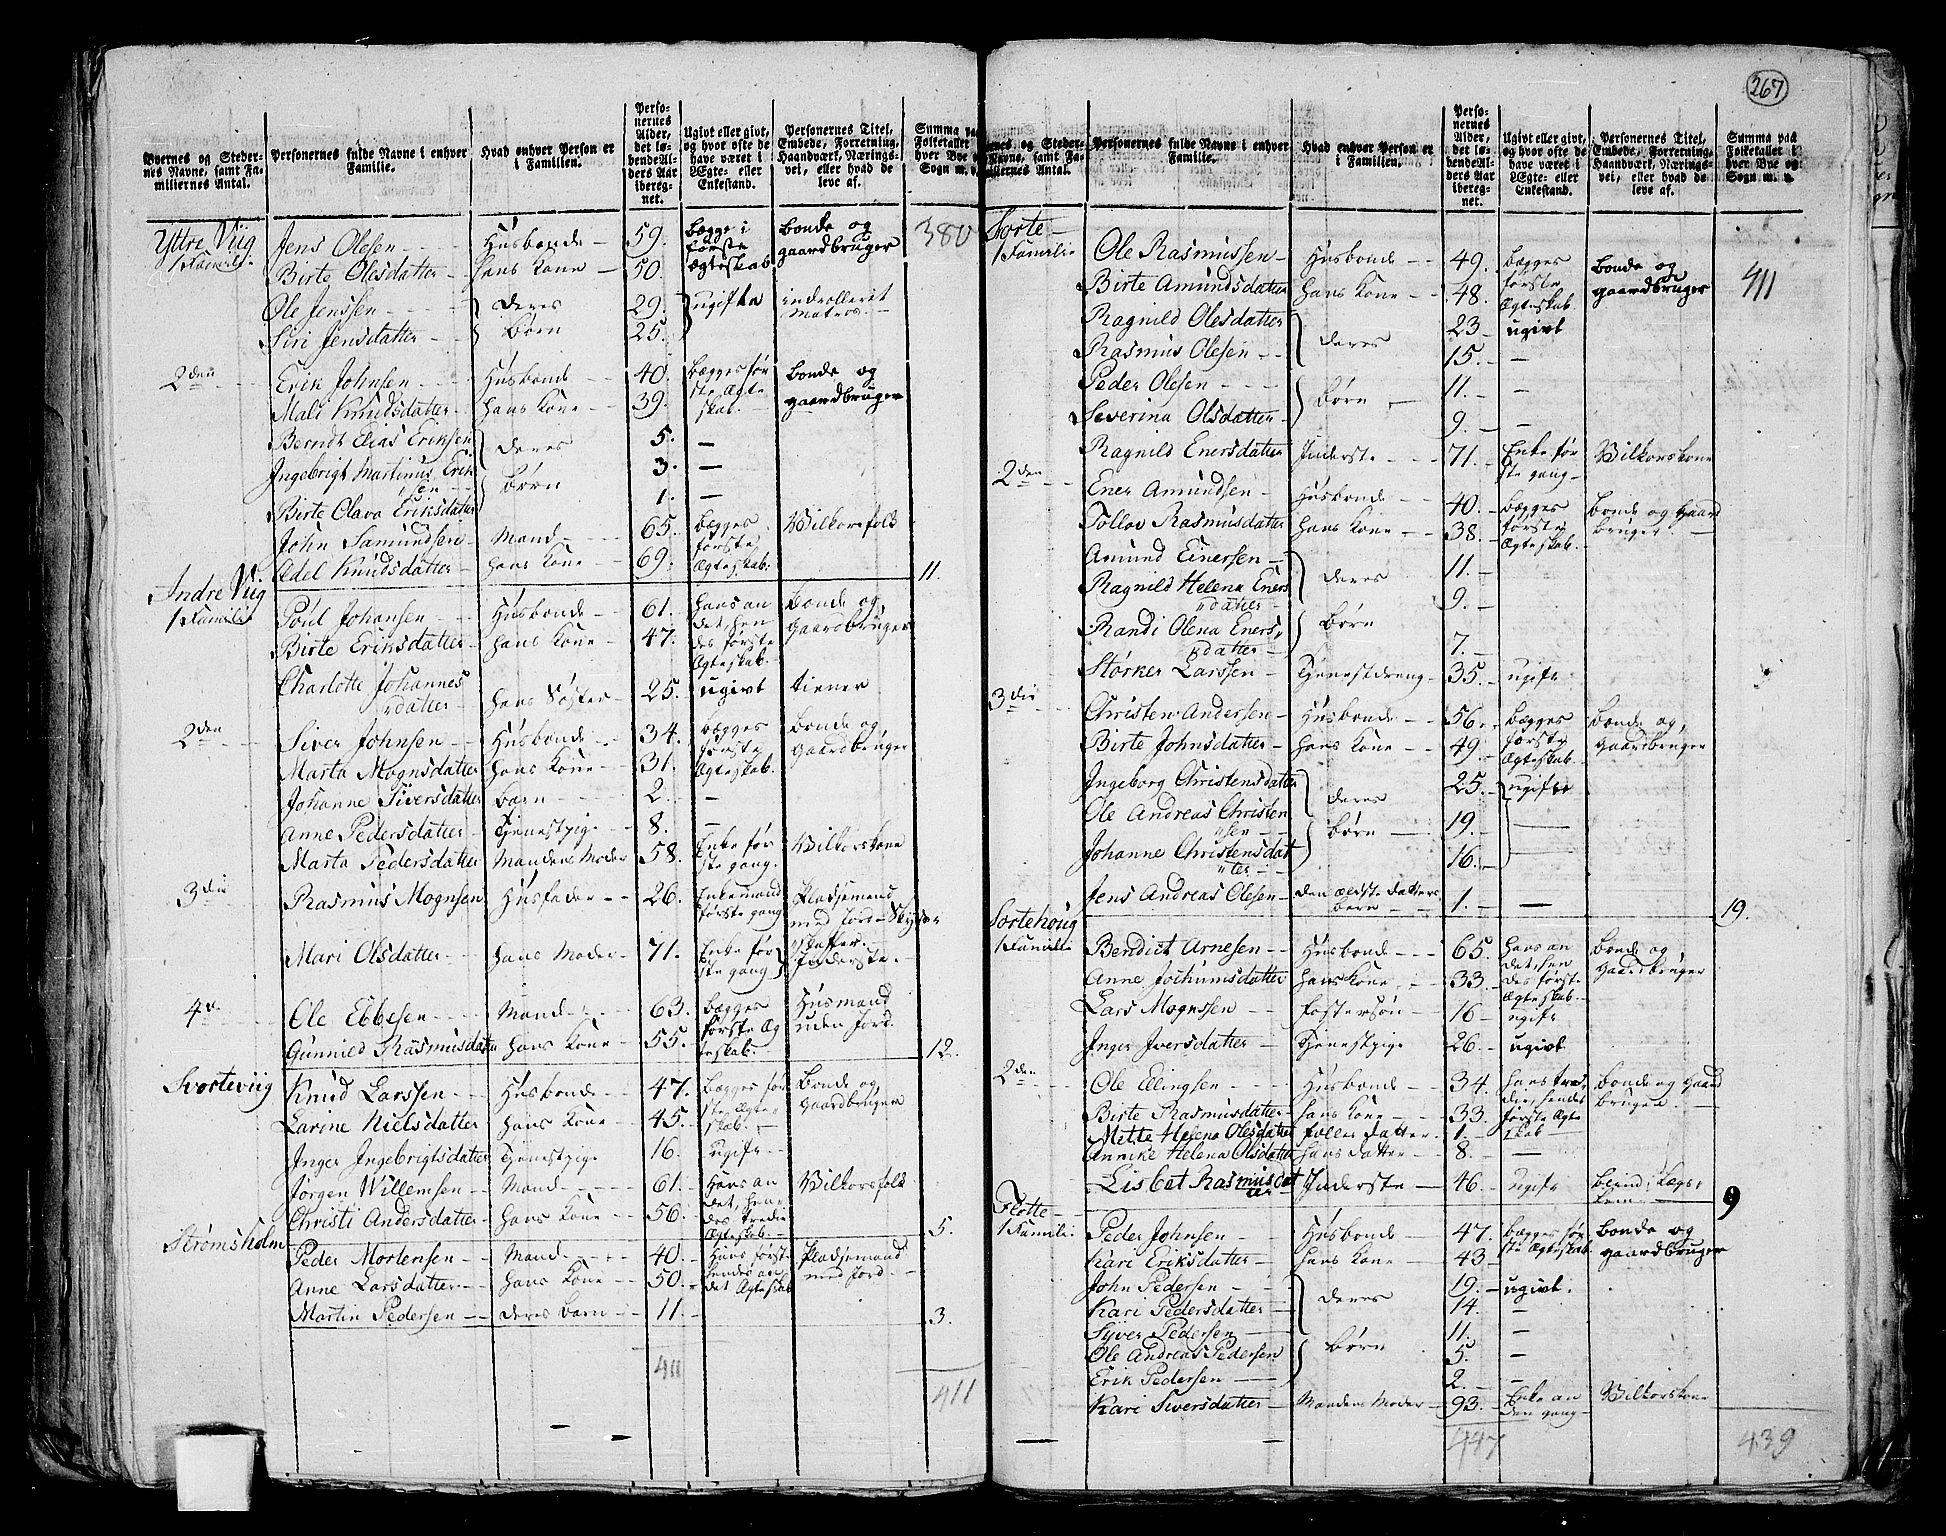 267
Byernes og Steder-
nes Navne, samt Fa-
miliernes Antal.
Personernes fulde Navne i enhver
Familie.
Hvad enhver Person er
i Familien.
Perso-
nernes
Alder,
det lø-
bende Aar
iberegnet.
Ugivt eller givt,
og hvor ofte de
have været i
Ægte- eller
Enkestand.
Personernes Titel,
Embede, Forretning,
Haandværk, Nærings-
vei, eller hvad de
leve af.
Summa paa
Folketallet i
hver Bye og
Sogn m. v.
Yttre Viig 380
1 Familie
Jens Olesen Huusbonde 59. Begge i første Ægteskab bonde og gaardbruger
Birte Olesdatter hans Kone 50.
Ole Jenssen deres 29. ugifta indrolleret Matros
Siri Jensdatter Børn 25.
2den Erik Johnsen Huusbonde 40. Begges første Ægteskab bonde og gaardbruger
Mali Knudsdatter hans Kone 39.
Berndt Elias Eriksen deres 5. —
Ingebrigt Martinus Eriksen Børn 3. —
Birte Olava Eriksdatter 1. —
John Samundsen Mand 65. begges første Ægteskab. Vilkorsfolk
Adel Knudsdatter hans Kone 69. 11.
Indre Viig
1 Familie
Poul Johansen Huusbonde 61. hans andet, hendes første Ægteskab Bonde og Gaardbruger
Birte Eriksdatter hans Kone 47.
Charlotte Johannesdatter hans Søster 25. ugivt tiener
2den Siver Johnsen Huusbonde 34. begges første Ægteskab. bonde og gaardbruger
Marta Mognsdatter hans Kone 31.
Johanne Siversdatter barn 2. —
Anne Pedersdatter Tjenestpige 8. —
Marta Pedersdatter Mandens Moder 58. Enke første gang. Vilkorskone
3die Rasmus Mognsen Huusfader 26. Enkemand første gang Pladsemand med Jord
Mari Olsdatter hans Moder 71. Enke første gang Inderste.
4de Ole Ebbesen Mand 63. begges første Ægteskab. Huusmand uden Jord.
Gunnild Rasmusdatter hans Kone 55. 12.
Svorteviig Knud Larssen Huusbonde 47. Begges første Ægteskab. Bonde og Gaardbruger
Larine Nielsdatter hans Kone 45.
Inger Ingebrigtsdatter Tjenestpige 16. ugift
Jørgen Willemsen Mand 61. Hans andet, hendes tredie Ægteskab Vilkorsfolk
Christi Andersdatter hans Kone 56. 5.
Strømsholm Peder Mortensen Mand 40. Hans første hendes andet Ægteskab Pladsemand med Jord
Anne Larsdatter hans Kone 50.
Martin Pedersen deres barn 11. 3.
411 411
Byernes og Steder-
nes Navne, samt Fa-
miliernes Antal.
Personernes fulde Navne i enhver
Familie.
Hvad enhver Person er
i Familien.
Perso-
nernes
Alder,
det lø-
bende Aar
iberegnet.
Ugivt eller givt,
og hvor ofte de
have været i
Ægte- eller
Enkestand.
Personernes Titel,
Embede, Forretning,
Haandværk, Nærings-
vei, eller hvad de
leve af.
Summa paa
Folketallet i
hver Bye og
Sogn m. v.
Sorte 411
1 Familie
Ole Rasmussen Huusbonde 49. begges første Ægteskab bonde og gaardbruger
Birte Amundsdatter hans Kone 48.
Ragnild Olesdatter 23 ugivt
Rasmus Olesen deres 15. —
Peder Olesen børn 11. —
Severina Olsdatter 9. —
Ragnild Enersdatter Inderste 71. Enke første gang Vilkorskone
2den Ener Amundsen Huusbonde 40. begges første Ægteskab bonde og Gaardbruger
Tollov Rasmusdatter hans Kone 38.
Amund Einersen deres 11.
Ragnild Helena Enersdatter 9.
Randi Olena Enersdatter Børn 7.
Størker Larssen Tjenestdreng 35. ugift
3die Christen Andersen Huusbonde 56. begges første Ægteskab bonde og Gaardbruger
Birte Johnsdatter hans Kone 49.
Ingeborg Christensdatter deres 25. ugift
Ole Andreas Christensen Børn 19. —
Johanne Christensdatter 16. —
Jens Andreas Olesen den ældste datters barn 1. — 19.
Sortehoug
1 Familie
Bendict Arnesen Huusbonde 65. hans andet, hendes første Ægteskab bonde og Gaardbruger
Anne Jochumsdatter hans Kone 33.
Lars Mognssen fostersøn 16 ugift
Inger Iversdatter Tjenestpige 26. ugivt
2den Ole Ellingsen Huusbonde 34 hans tredie, hendes første Ægteskab bonde og Gaardbruger
Birte Rasmusdatter hans Kone 33.
Mette Helena Olesdatter fælles datter 1.
Annike Helena Olsdatter hans datter 8. —
Lisbet Rasmusdatter Inderste 46. ugift 9
Flotte
1 Familie
Peder Johnsen Huusbonde 47. begges første Ægteskab bonde og gaardbruger
Kari Eriksdatter hans Kone 43
John Pedersen 19. ugivt.
Kari Pedersdatter deres 14. —
Syver Pedersen 11. —
Ole Andreas Pedersen Børn 5. —
Erik Pedersen 2. —
Kari Siversdatter Mandens Moder 93. Enke anden gang Vilkorskone
447 439